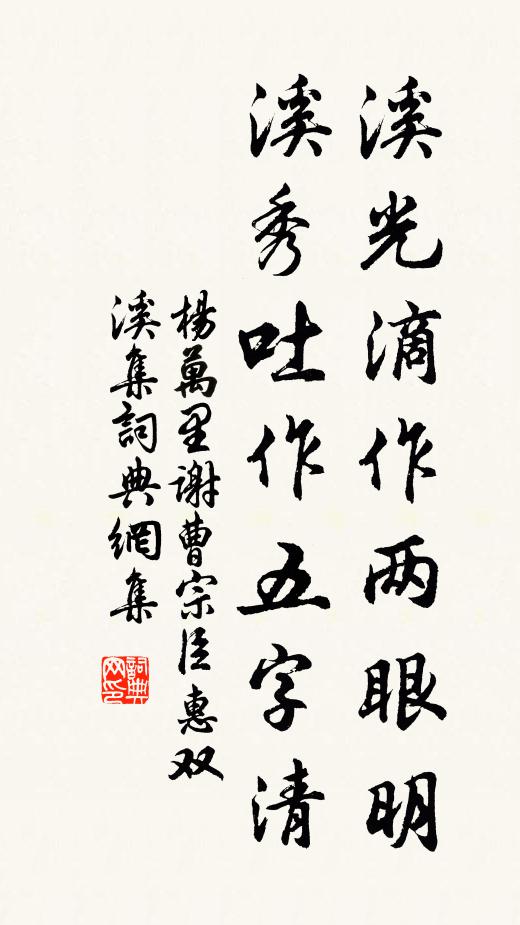 溪光滴作两眼明
溪秀吐作五字清
楊萬里謝曹宗臣惠双
溪集詞典網集
詞典
网印